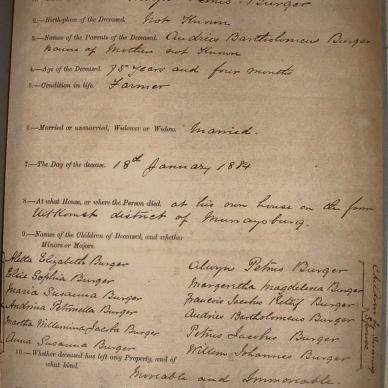 Petrus Burger
2.—Birth-place of the Deceased. Not Known
3.—Names of the Parents of the Deceased. Andries Bartholomeus Burger
name of Mother not Known
4.—Age of the Deceased. 75 Years and four months
5.—Condition in life. Farmer
6.—Married or unmarried, Widower or Widow. Married.
7.—The Day of the decease. 18th January 1884
8.—At what House, or where the Person died. at his own house on the farm
Uitkomst district of Murraysburg.
9.—Names of the Children of Deceased, and whether
Minors or Majors.
Aletta Elizabeth Burger
Elsie Sophia Burger
Maria Susanna Burger
Andrina Petronella Burger
Martha Willemina Jacoba Burger
Anna Susanna Burger
Alwyn Petrus Burger
Margeretha Magdalena Burger
Francois Jacobus Retief Burger
Andries Bartholomeus Burger
Petrus Jacobus Burger
Willem Johannes Burger
10.—Whether deceased has left any Property, and of
what kind.
Moveable and Immoveable